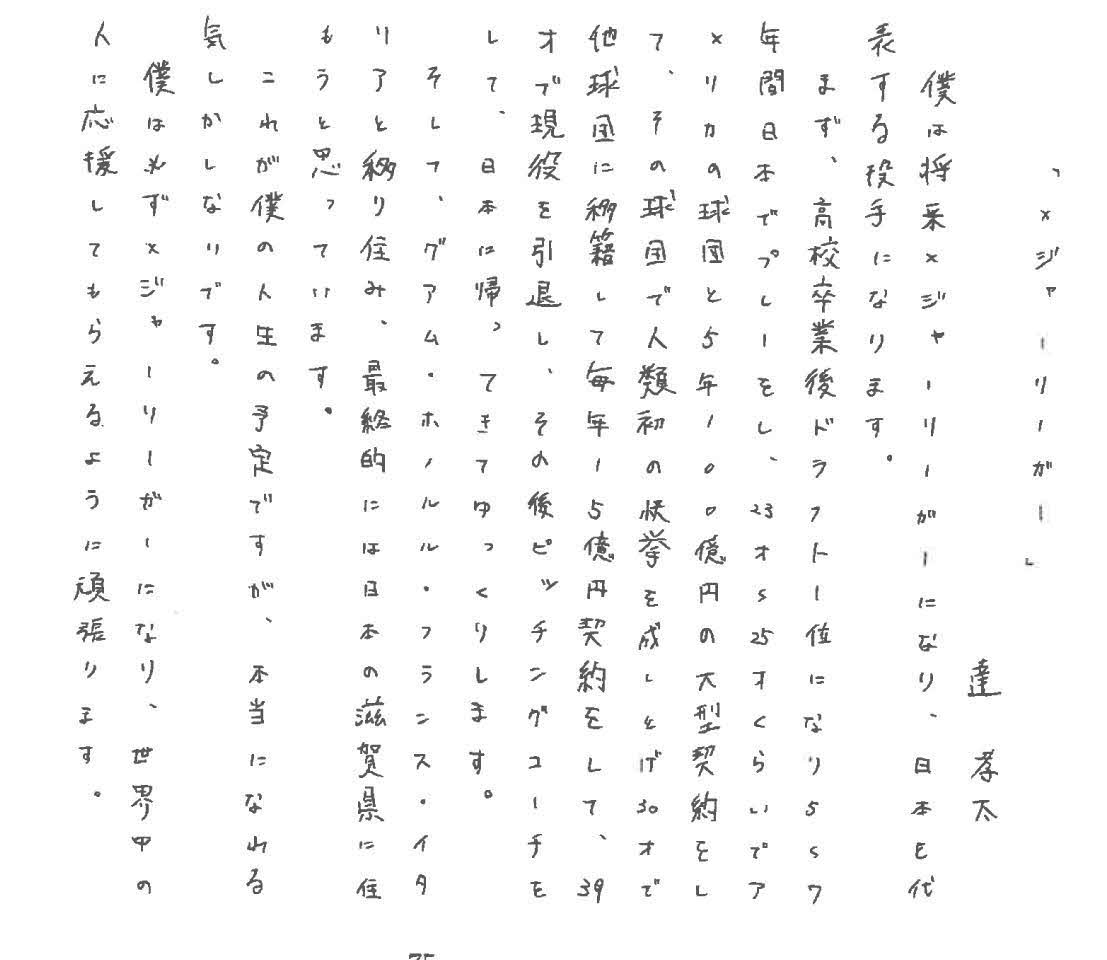 「メジャーリーガー」
達 孝太
僕は将来メジャーリーガーになり、日本を代
表する投手になります。
まず、高校卒業後ドラフト一位になり5〜7
年間日本でプレーをし、23才〜25才くらいでア
メリカの球団と5年100億円の大型契約をし
て、その球団で人類初の快挙を成しとげ30才で
他球団に移籍して毎年15億円契約をして、39
才で現役を引退し、その後ピッチングコーチを
して、日本に帰ってきてゆっくりします。
そして、グアム・ホノルルル・フランス・イタ
リアと移り住み、最終的には日本の滋賀県に住
もうと思っています。
これが僕の人生の予定ですが、本当になれる
気しかしないです。
僕は必ずメジャーリーガーになり、世界中の
人に応援してもらえるように頑張ります。